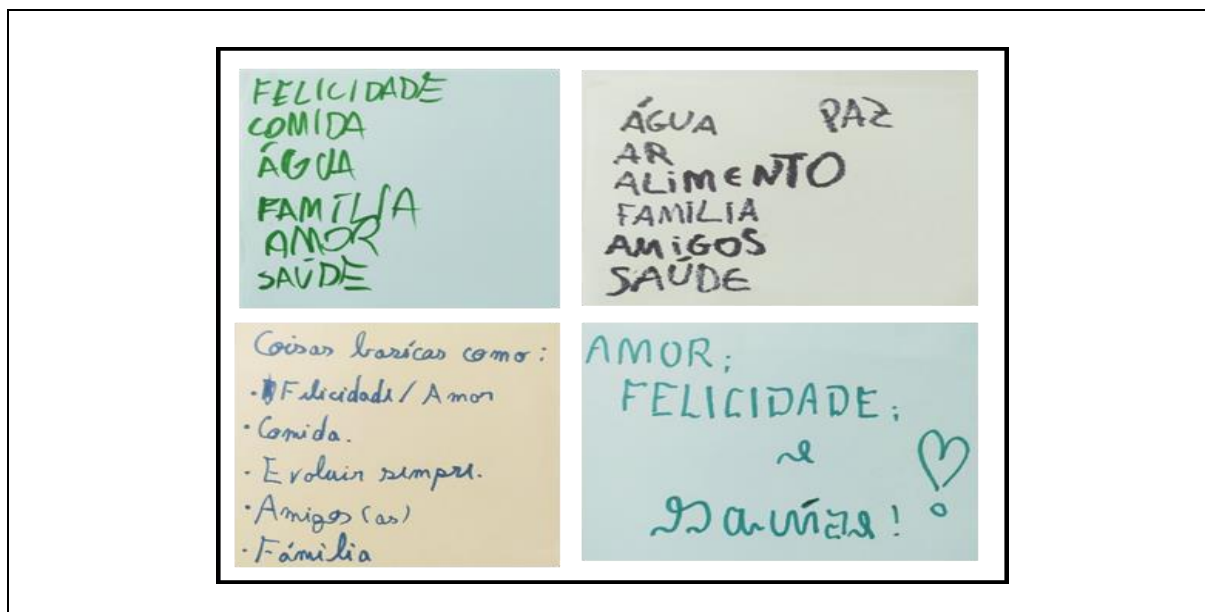 FELICIDADE
COMIDA
ÁGUA
FAMÍLIA
AMOR
SAÚDE
ÁGUA PAZ
AR
ALIMENTO
FAMILIA
AMIGOS
SAÚDE
Coisas basícas como:
· Felicidade / Amor
· Comida.
· Evoluir sempre.
· Amigos (as)
· Fámilia
AMOR;
FELICIDADE;
e
!